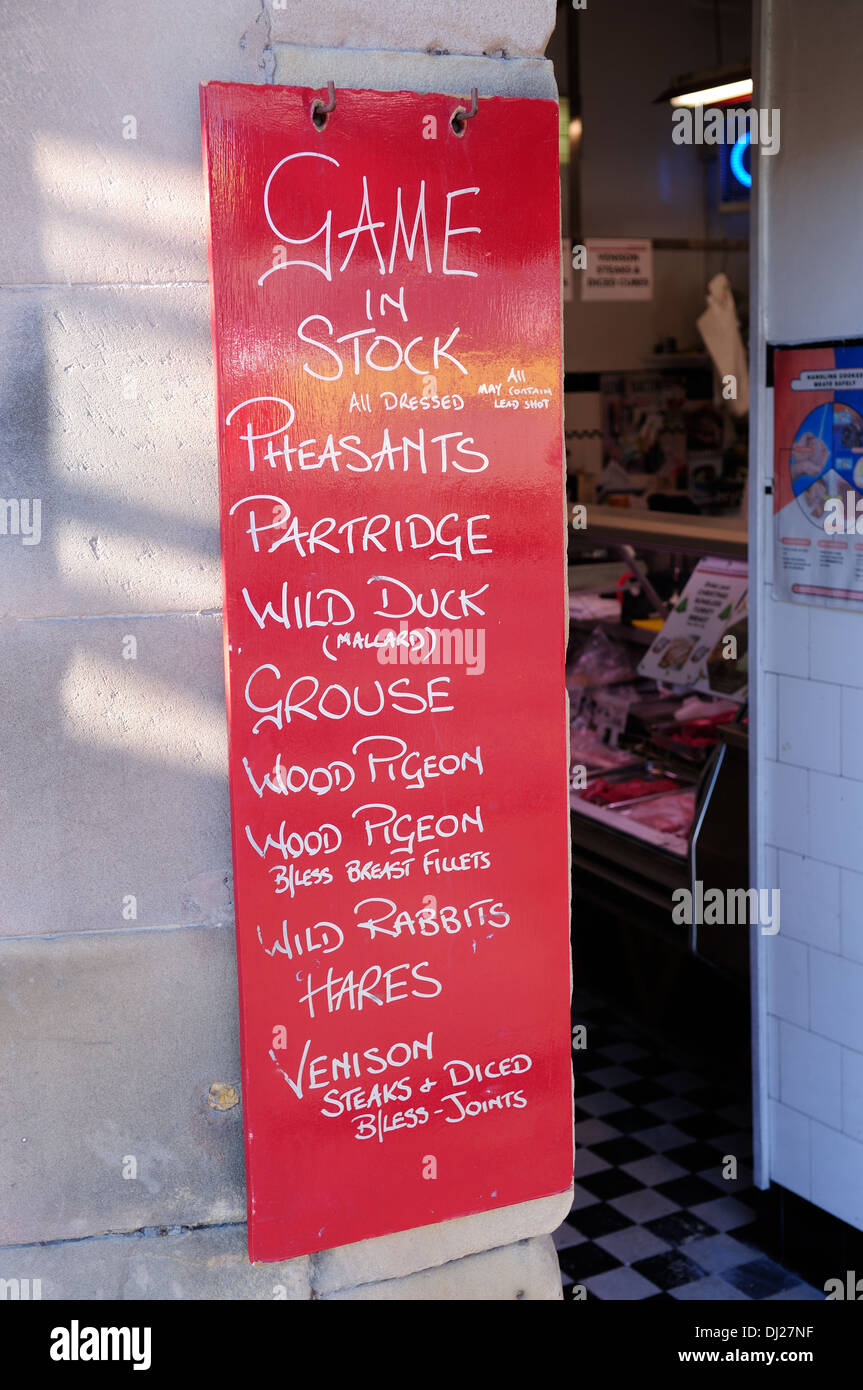 GAME
IN
STOCK
All DRESSED
All
MAY CONTAIN
LEAD SHOT
PHEASANTS
PARTRIDGE
WILD DUCK
(MALLARD)
GROUSE
WOOD PIGEON
WOOD PIGEON
B/LESS BREAST FILLETS
WILD RABBITS
HARES
VENISON
STEAKS & DICED
B/LESS - JOINTS
VENISON
STEAKS &
DICED CUBES
HANDLING COOKED
MEATS SAFELY
alamy
alamy
Image ID: DJ27NF
www.alamy.com